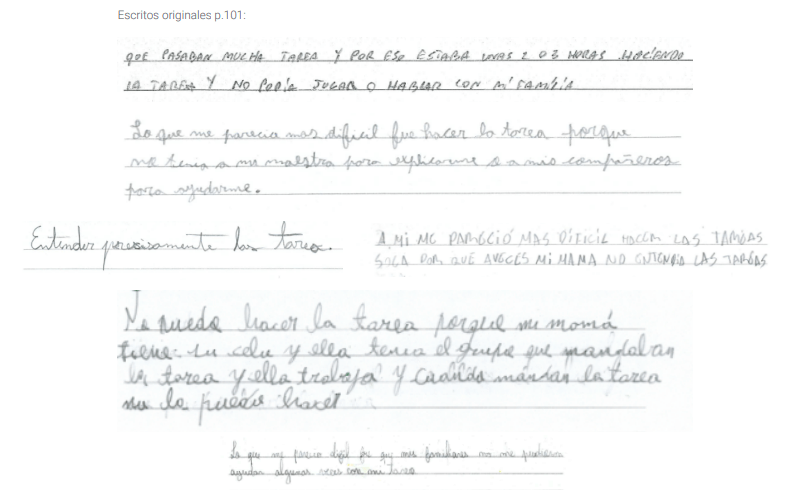 Escritos originales p.101:
QUE PASABAN MUCHA TAREA Y POR ESO ESTABA UNAS 2 O 3 HORAS HACIENDO
LA TAREA Y NO PODÍA JUGAR O HABLAR CON MI FAMILIA
Lo que me parecia mas dificil fue hacer la tarea porque
no tenia a mi maestra para explicarme o a mis compañeros
para ayudarme.
Entender precisamente las tarea.
A MI ME PARECIÓ MAS DIFICIL HACER LAS TAREAS
SOLA POR QUE AVECES MI MAMA NO ENTENDIA LAS TAREAS
No puedo hacer la tarea porque mi momá
tiene su celu y ella tenia el grupo que mandaban
la tarea y ella trabaja y cuando mandan la tarea
no la puedo hacer
Lo que me parecio dificil fue que mis familiares no me pudieron
ayudar algunas veces con mi tarea